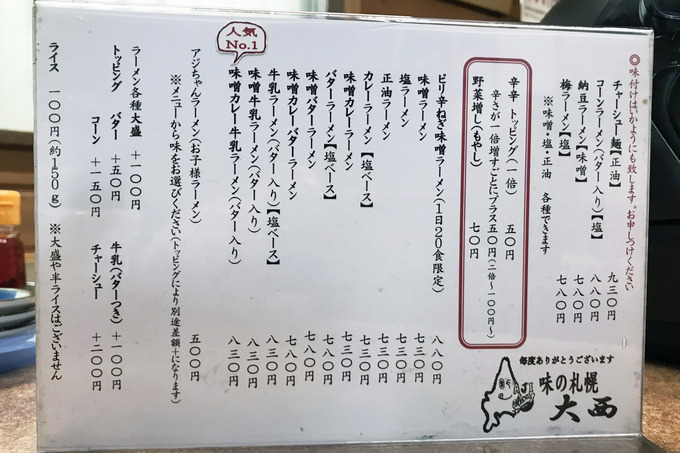 ◎味付けはいかようにも致します。お申しつけください
チャーシュー麺【正油】 九三〇円
コーンラーメン(バター入り)【塩】 八八〇円
納豆ラーメン【味噌】 七八〇円
梅ラーメン【塩】 七八〇円
※味噌・塩・正油 各種できます
辛辛 トッピング(一倍) 五〇円
辛さが一倍増すごとにプラス五〇円(二倍〜一〇〇円〜)
野菜増し(もやし) 七〇円
ピリ辛ねぎ味噌ラーメン(1日20食限定) 八八〇円
味噌ラーメン 七三〇円
塩ラーメン 七三〇円
正油ラーメン 七三〇円
カレーラーメン【塩ベース】 七三〇円
味噌カレーラーメン 七三〇円
バターラーメン【塩ベース】 七八〇円
味噌バターラーメン 七八〇円
味噌カレーバターラーメン 七八〇円
牛乳ラーメン(バター入り)【塩ベース】 八三〇円
味噌牛乳ラーメン(バター入り) 八三〇円
人気
No.1
味噌カレー牛乳ラーメン(バター入り) 八三〇円
アジちゃんラーメン(お子様ラーメン) 五〇〇円
※メニューから味をお選びください(トッピングにより別途差額+になります)
ラーメン各種大盛 +一〇〇円
トッピング バター +五〇円 牛乳(バターつき) +一〇〇円
コーン +一五〇円 チャーシュー +二〇〇円
ライス 一〇〇円(約150g) ※大盛や半ライスはございません
毎度ありがとうございます
味の札幌
大西